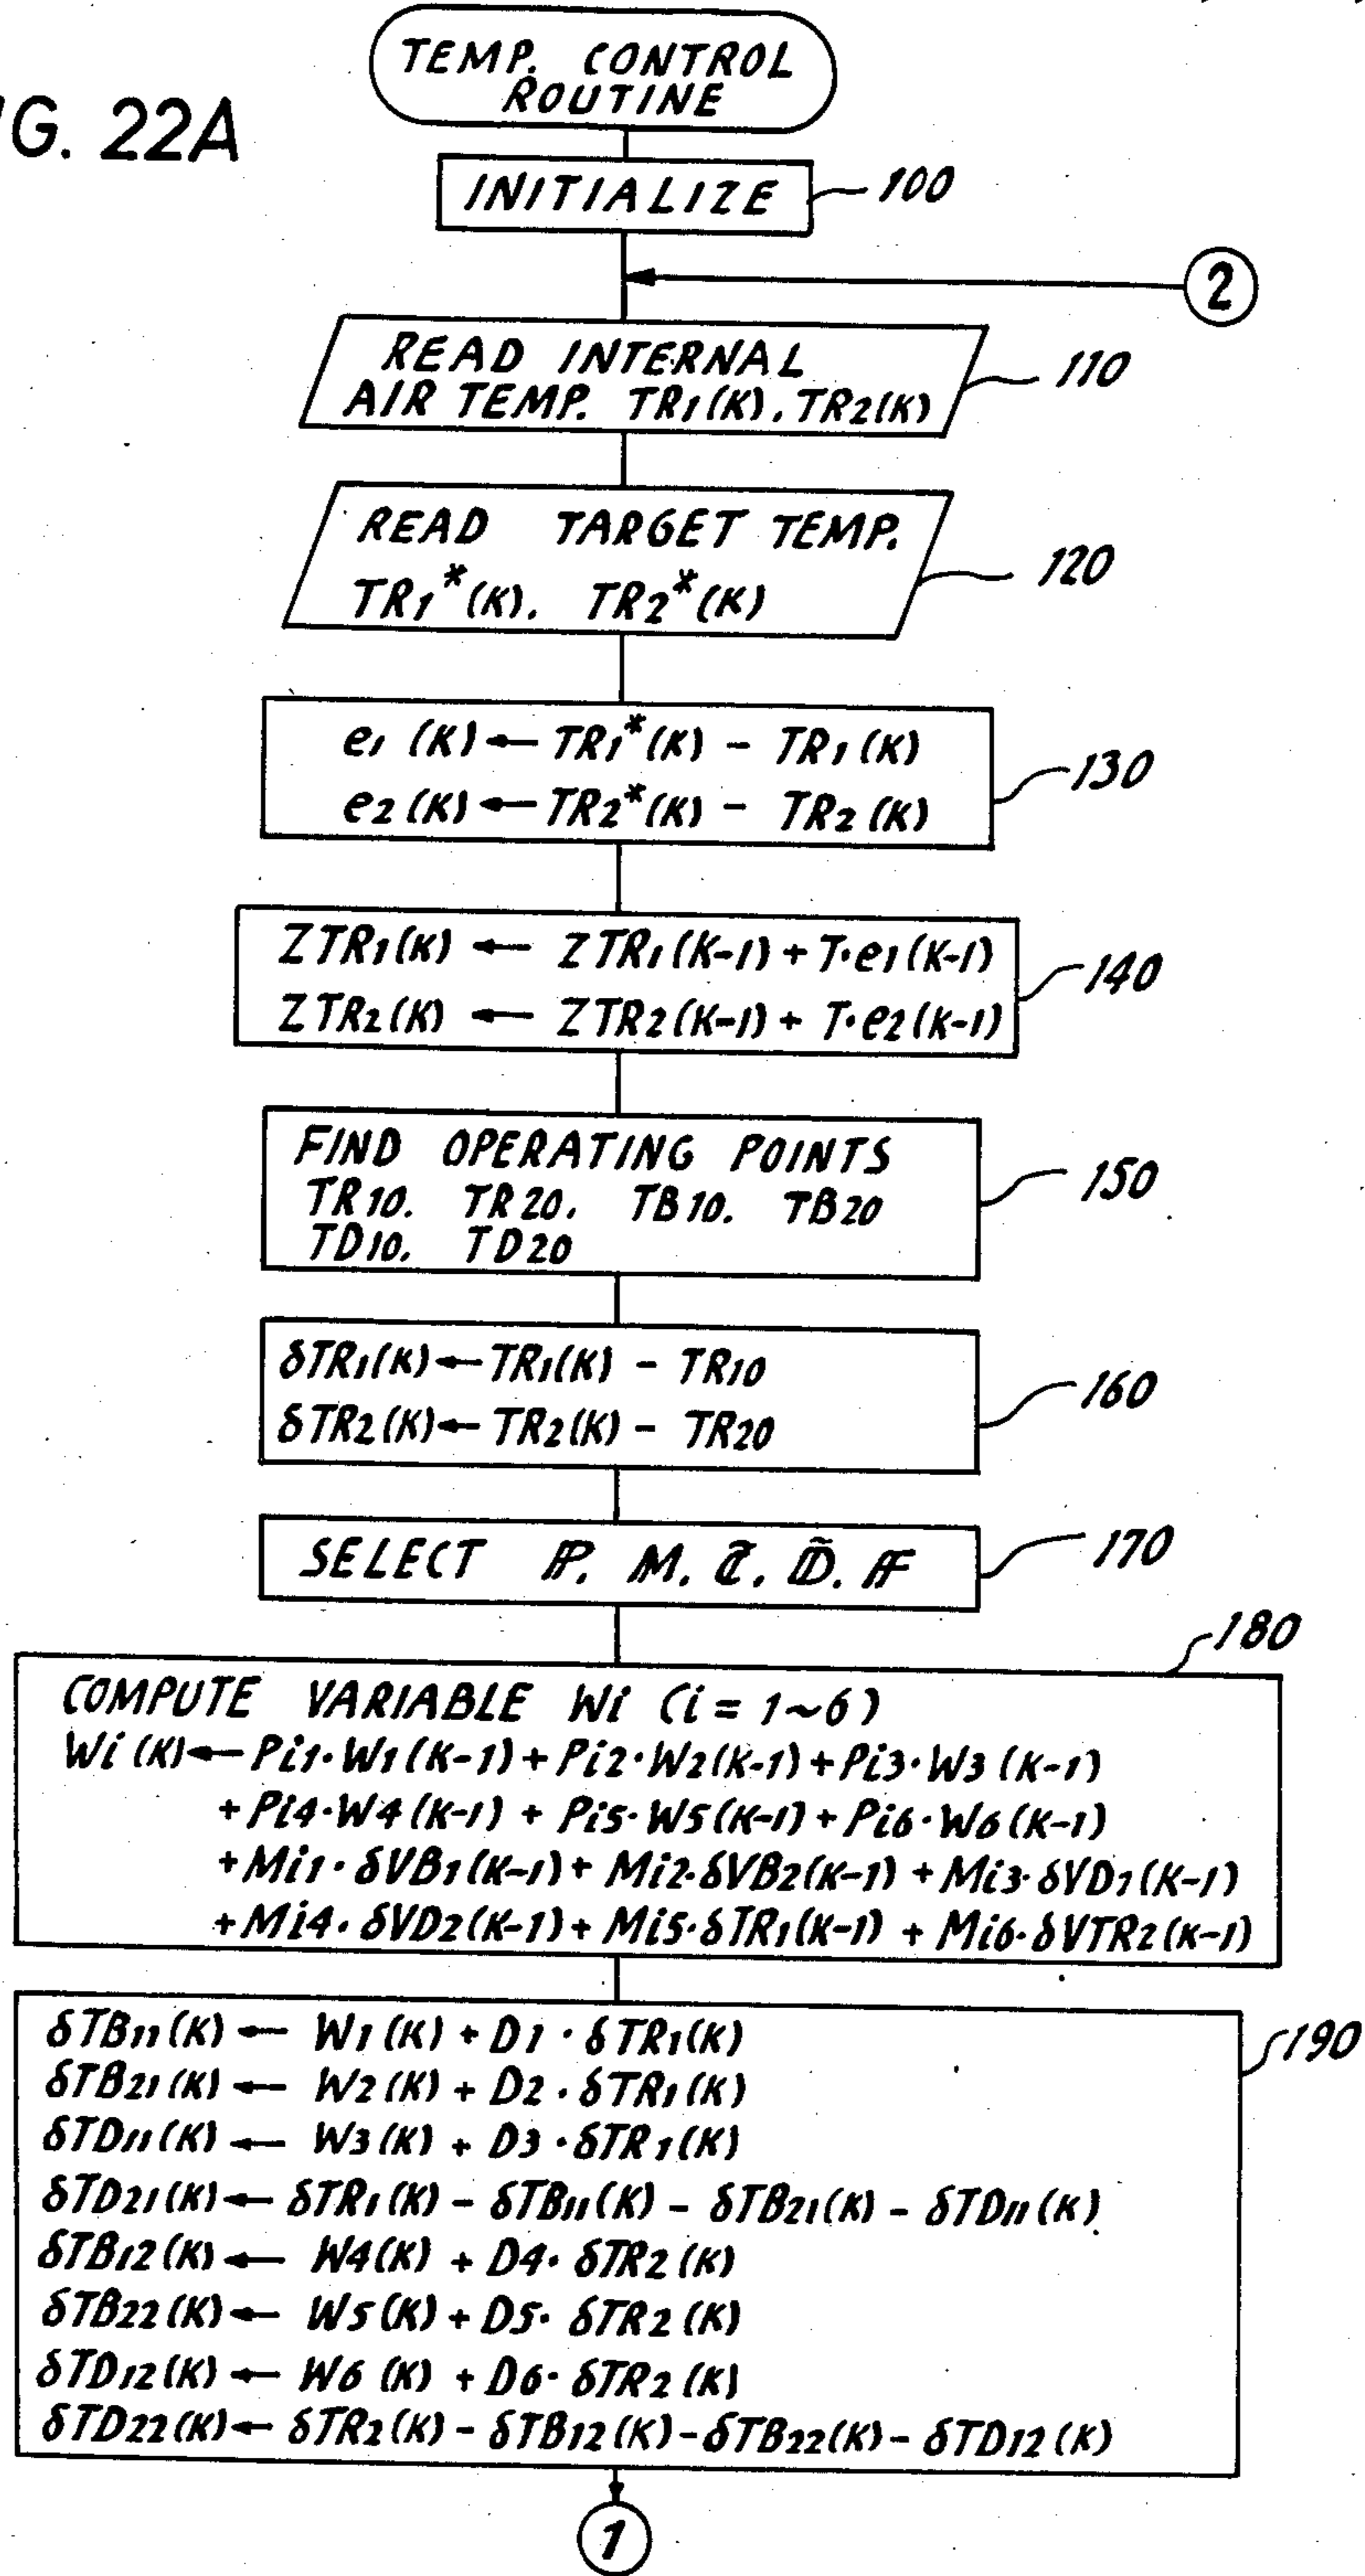 G. 22A
TEMP. CONTROL
ROUTINE
INITIALIZE
100
2
READ INTERNAL
AIR TEMP. TR1(K), TR2(K)
110
READ TARGET TEMP.
TR1*(K). TR2*(K)
120
e1 (K) ← TR1*(K) - TR1(K)
e2(K) ← TR2*(K) - TR2(K)
130
ZTR1(K) ← ZTR1(K-1) + T·e1(K-1)
ZTR2(K) ← ZTR2(K-1) + T·e2(K-1)
140
FIND OPERATING POINTS
TR10. TR20. TB10. TB20
TD10. TD20
150
δTR1(K) ← TR1(K) - TR10
δTR2(K) ← TR2(K) - TR20
160
SELECT ℙ. 𝕄. ℂ̃. 𝔻̃. 𝔽
170
180
COMPUTE VARIABLE Wi (i = 1~6)
Wi (K) ← Pi1·W1(K-1) + Pi2·W2(K-1) + Pi3·W3(K-1)
+ Pi4·W4(K-1) + Pi5·W5(K-1) + Pi6·W6(K-1)
+Mi1·δVB1(K-1) + Mi2·δVB2(K-1) + Mi3·δVD1(K-1)
+Mi4·δVD2(K-1) + Mi5·δTR1(K-1) + Mi6·δVTR2(K-1)
δTB11(K) ← W1(K) + D1·δTR1(K)
190
δTB21(K) ← W2(K) + D2·δTR1(K)
δTD11(K) ← W3(K) + D3·δTR1(K)
δTD21(K) ← δTR1(K) - δTB11(K) - δTB21(K) - δTD11(K)
δTB12(K) ← W4(K) + D4·δTR2(K)
δTB22(K) ← W5(K) + D5·δTR2(K)
δTD12(K) ← W6(K) + D6·δTR2(K)
δTD22(K) ← δTR2(K) - δTB12(K) - δTB22(K) - δTD12(K)
1